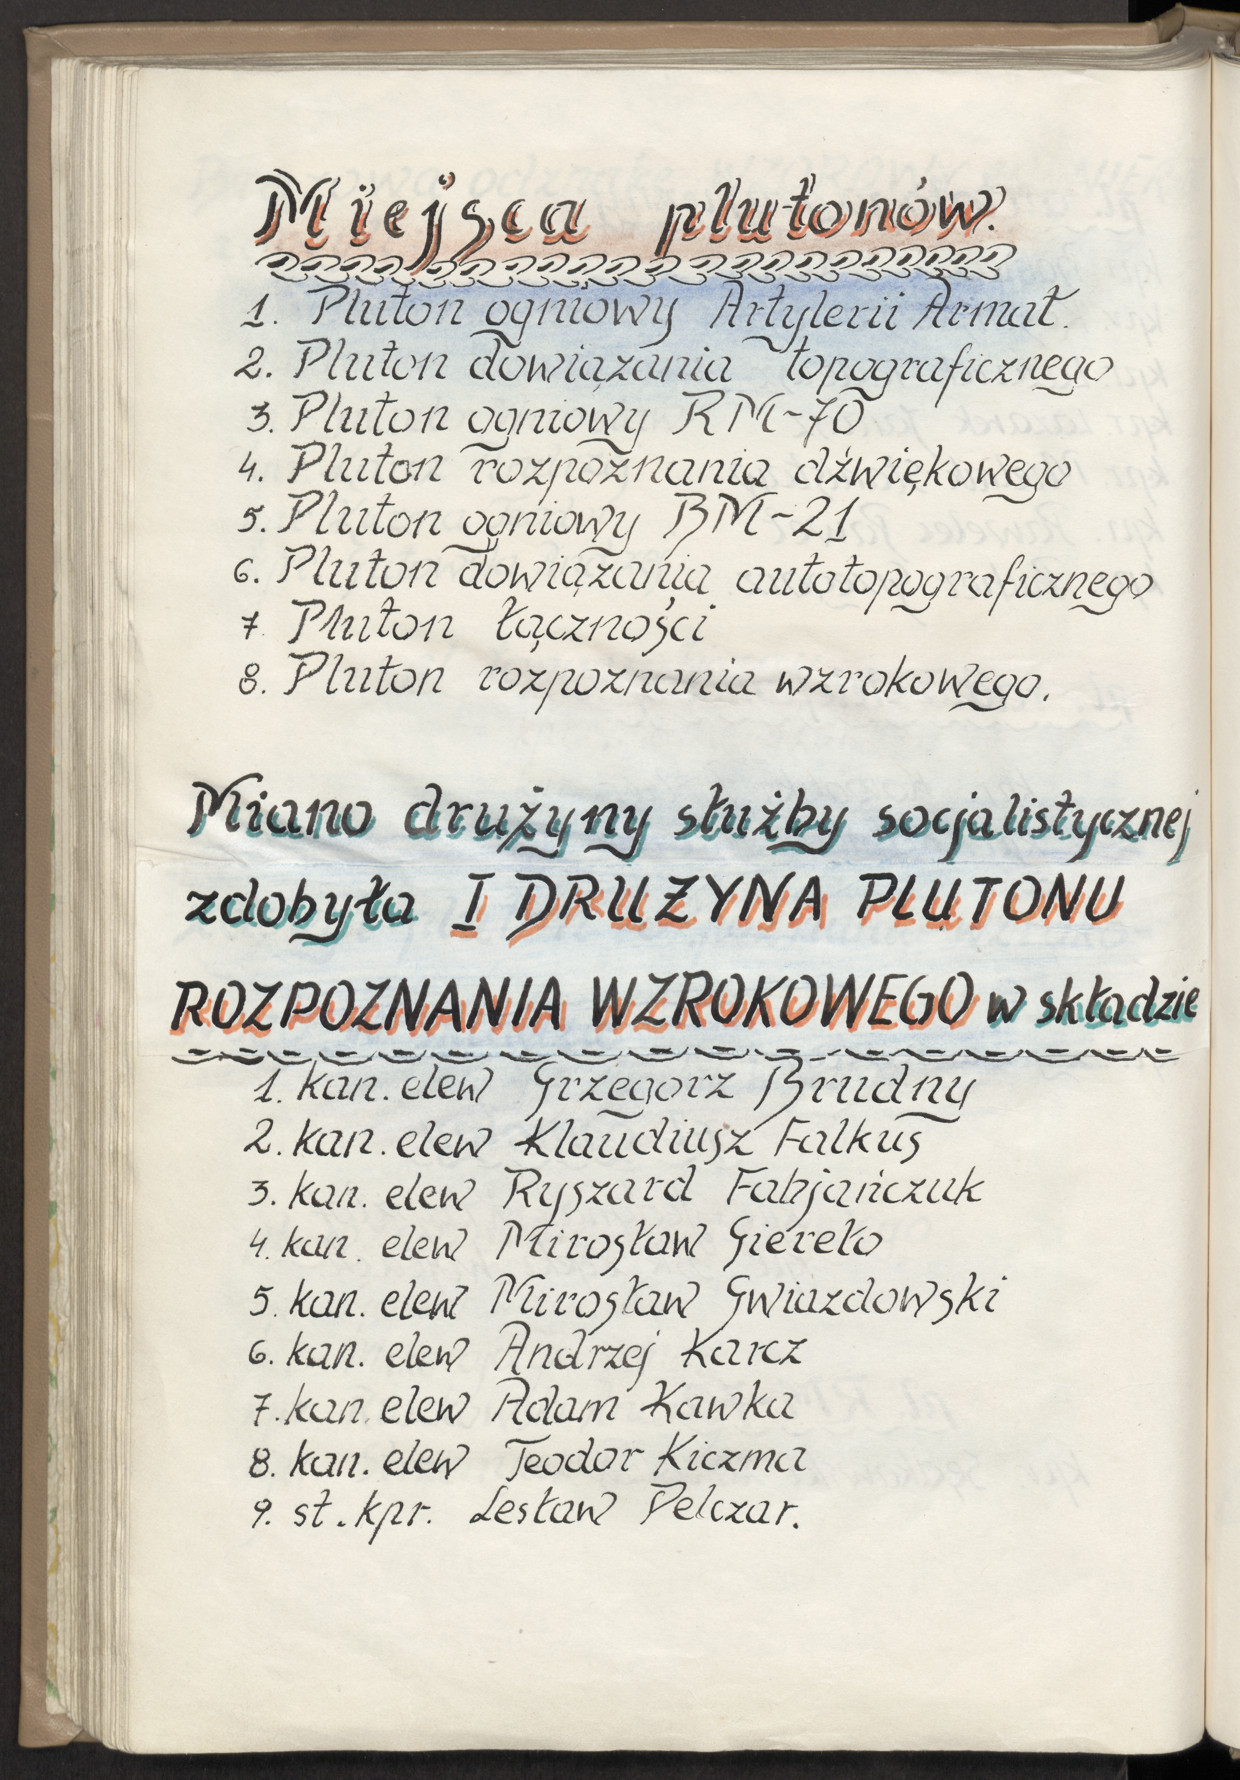 Miejsca plutonów.
1. Pluton ogniowy Artylerii Armat.
2. Pluton dowiązania topograficznego
3. Pluton ogniowy RM-70
4. Pluton rozpoznania dźwiękowego
5. Pluton ogniowy BM-21
6. Pluton dowiązania autotopograficznego
7. Pluton łączności
8. Pluton rozpoznania wzrokowego.
Miano drużyny służby socjalistycznej
zdobyła I DRUŻYNA PLUTONU
ROZPOZNANIA WZROKOWEGO w składzie
1. kan. elew Grzegorz Brudny
2. kan. elew Klaudiusz Falkus
3. kan. elew Ryszard Fabjańczuk
4. kan. elew Mirosław Giereło
5. kan. elew Mirosław Gwiazdowski
6. kan. elew Andrzej Karcz
7. kan. elew Adam Kawka
8. kan. elew Teodor Kiczma
9. st. kpr. Lesław Pelczar.